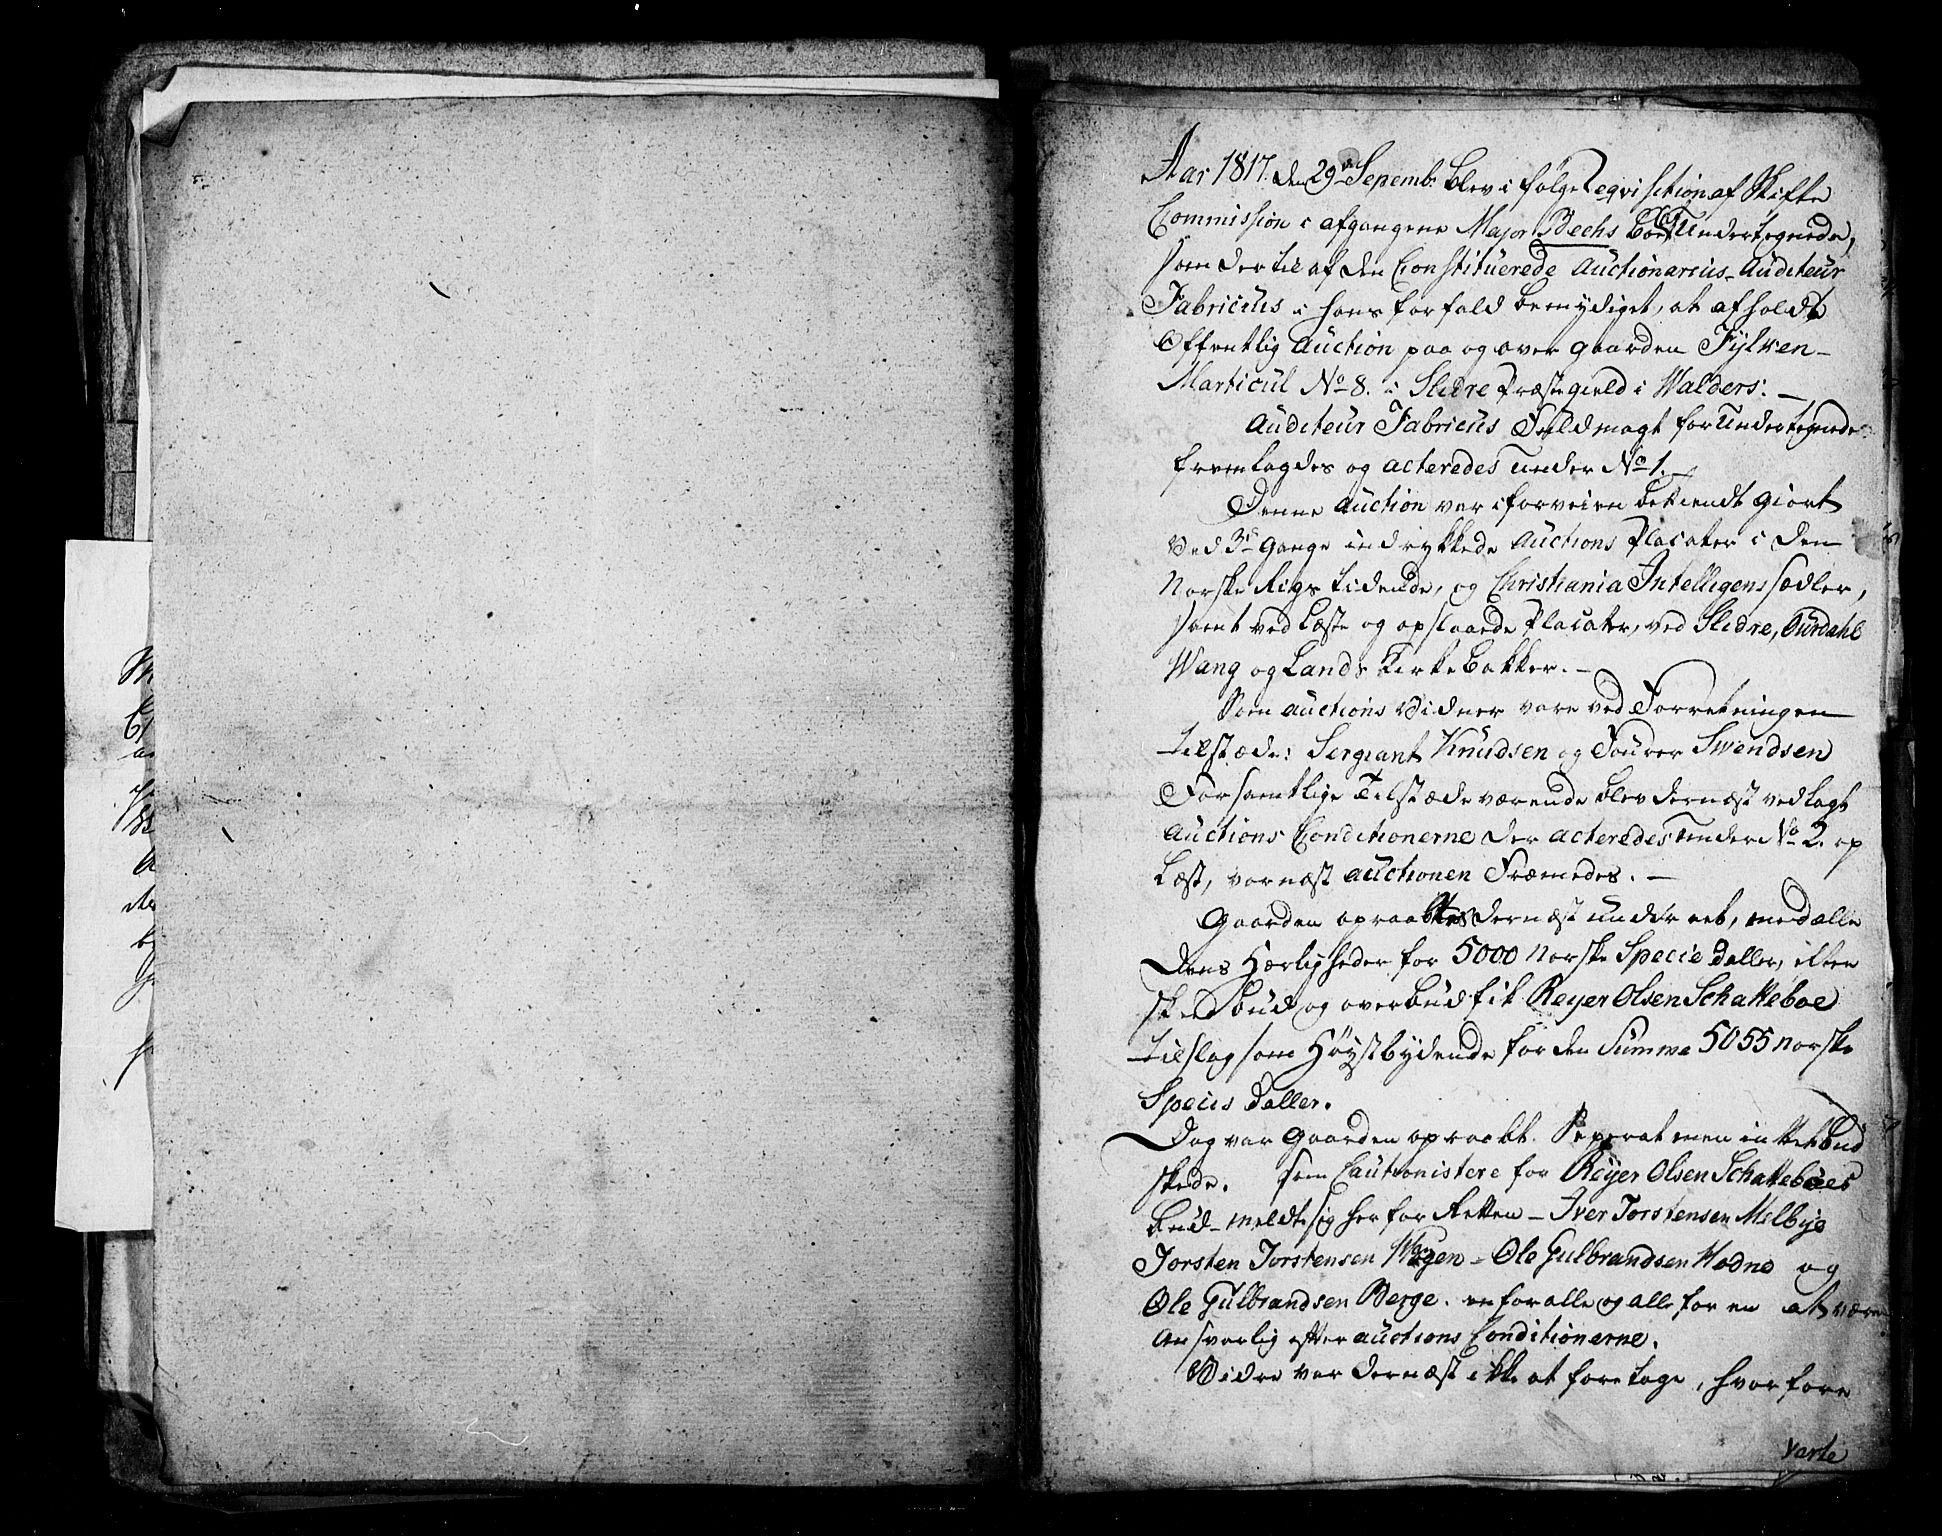 Aar 1817. den 29de Sepemb: blev i følge Reqvisition af Skifte
Commission i afgangene Major Bechs Boe Undertegnede,
som dertil af den Constituerede Auctionarius Auditeur
Fabricius i hans forfald bemydiget, at afholdt
Offentlig Auction paa og over gaarden Fylken
Marticul No 8. i Slidre Præstegield i Walders: —
Auditeur Fabricius Fuldmagt for Undertegnede
fremlagdes og acteredes under No 1. —
Denne Auction var i forveien bekiendt giort
ved 3de Gange indrykkede Auctions Placater i den
Norske Rigs tidende, og Christiania Intelligenssedler,
samt ved Læste og opslaaede Placater, ved Slidre, Ourdahl
Wang og Lands Kirkebakker. —
Som auctions Vidner vare ved Forretningen
tilstæde: Sergiant Knudsen og Fourer Swendsen
For samtlige Tilstædeværende blev dernæst vedlagt
Auctions Conditionerne der acteredes under No 2. op
Læst, vornæst auctionen Fræmedes. —
Gaarden opraabtes dernæst under eet, med alle
Dens Herligheder for 5000 Norske Specie Daller, efter
skeed bud og overbud fik Reyer Olsen Schatteboe
tilslag som Høystbydende for den Summa 5055 norske
Specis Daller.
Dog var Gaarden opraabt Seperat men intet bud
skede. som Cautionistere for Reyer Olsen Schatteboes
bud meldte sig her for Retten – Iver Torstensen Melbye
Torsten Torstensen Wagen – Ole Gulbrandsen Hodne og
Ole Gulbrandsen Berge. en for alle og alle for en at være
Ansvarlig efter auctions Conditionerne.
Vidre var dernæst ikke at foretage, hvorfore
Verte